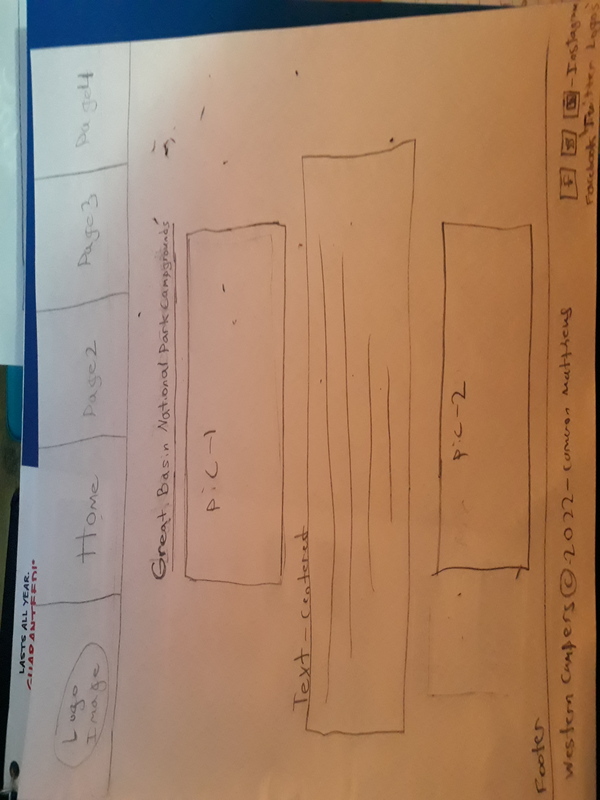 LASTS ALL YEAR.
GUARANTEED!*
Logo
Image
Home
Page2
Page3
Page4
Great Basin National Park Campgrounds
pic-1
Text-centered
pic-2
Footer
Western Campers © 2022-Cameron Matthews
f
-Instagram
Facebook Twitter Logos